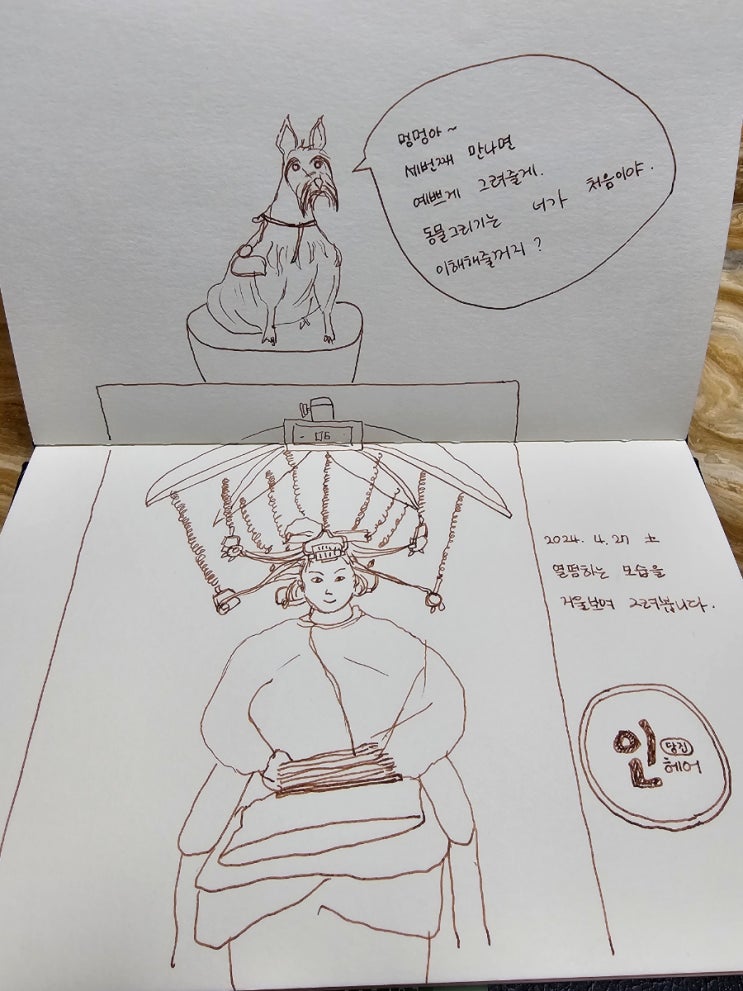 멍멍아~
세번째 만나면
예쁘게 그려줄게.
동물그리기는 너가 처음이야.
이해해줄꺼지?
2024. 4. 27 土
열펌하는 모습을
거울보며 그려봅니다.
인 당진
헤어